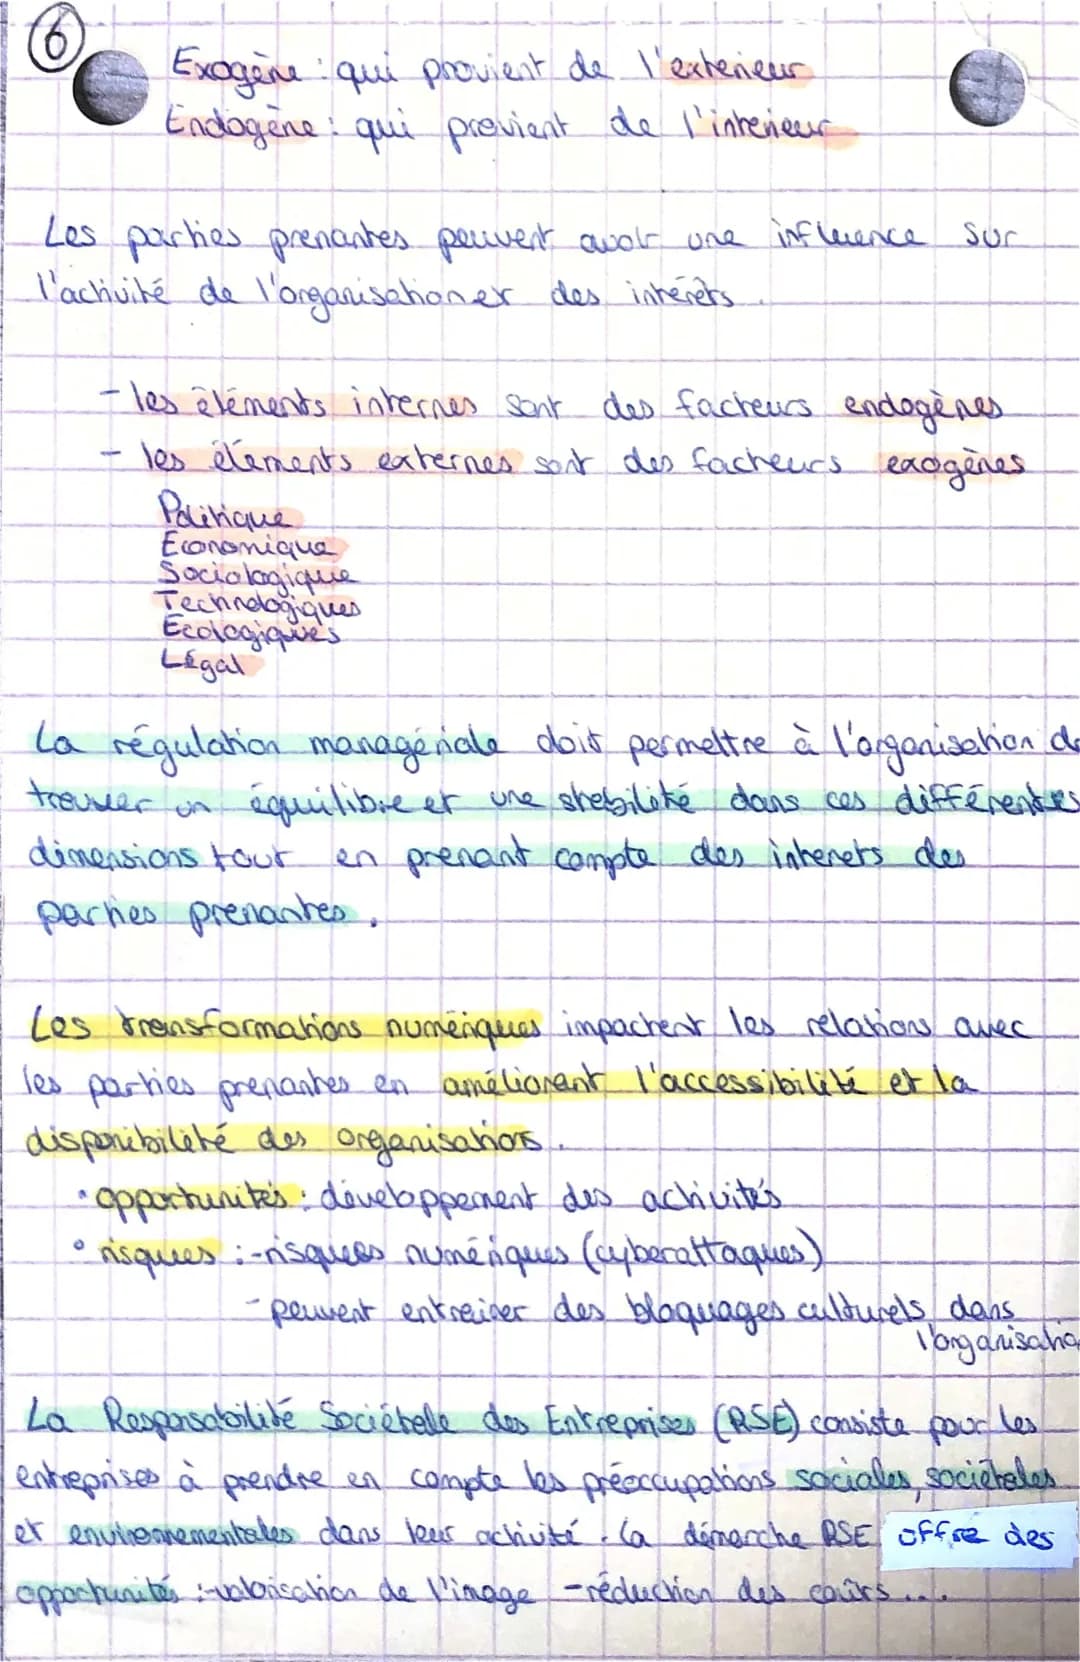 6
Exogène : qui provient de l'exterieur
Endogène : qui provient de l'interieur
Les parties prenantes peuvent avoir une influence sur
l'activité de l'organisation et des intérêts.
- les éléments internes sont des facteurs endogènes
- les éléments externes sont des facteurs exogènes
Politique
Economique
Sociologique
Technologiques
Ecologiques
Légal
La régulation managériale doit permettre à l'organisation de
trouver un équilibre et une stabilité dans ces différentes
dimensions tout en prenant compte des interets des
parties prenantes.
Les transformations numériques impactent les relations avec
les parties prenantes en améliorant l'accessibilité et la
disponibilité des organisations.
• opportunités : développement des activités
• risques : - risques numériques (cyberattaques)
- peuvent entrainer des bloquages culturels dans
l'organisatio
La Responsabilité Sociételle des Entreprises (RSE) consiste pour les
entreprises à prendre en compte les préoccupations sociales, sociétales
et environnementales dans leur activité. La démarche RSE offre des
opportunités : - valorisation de l'image - réduction des coûts....